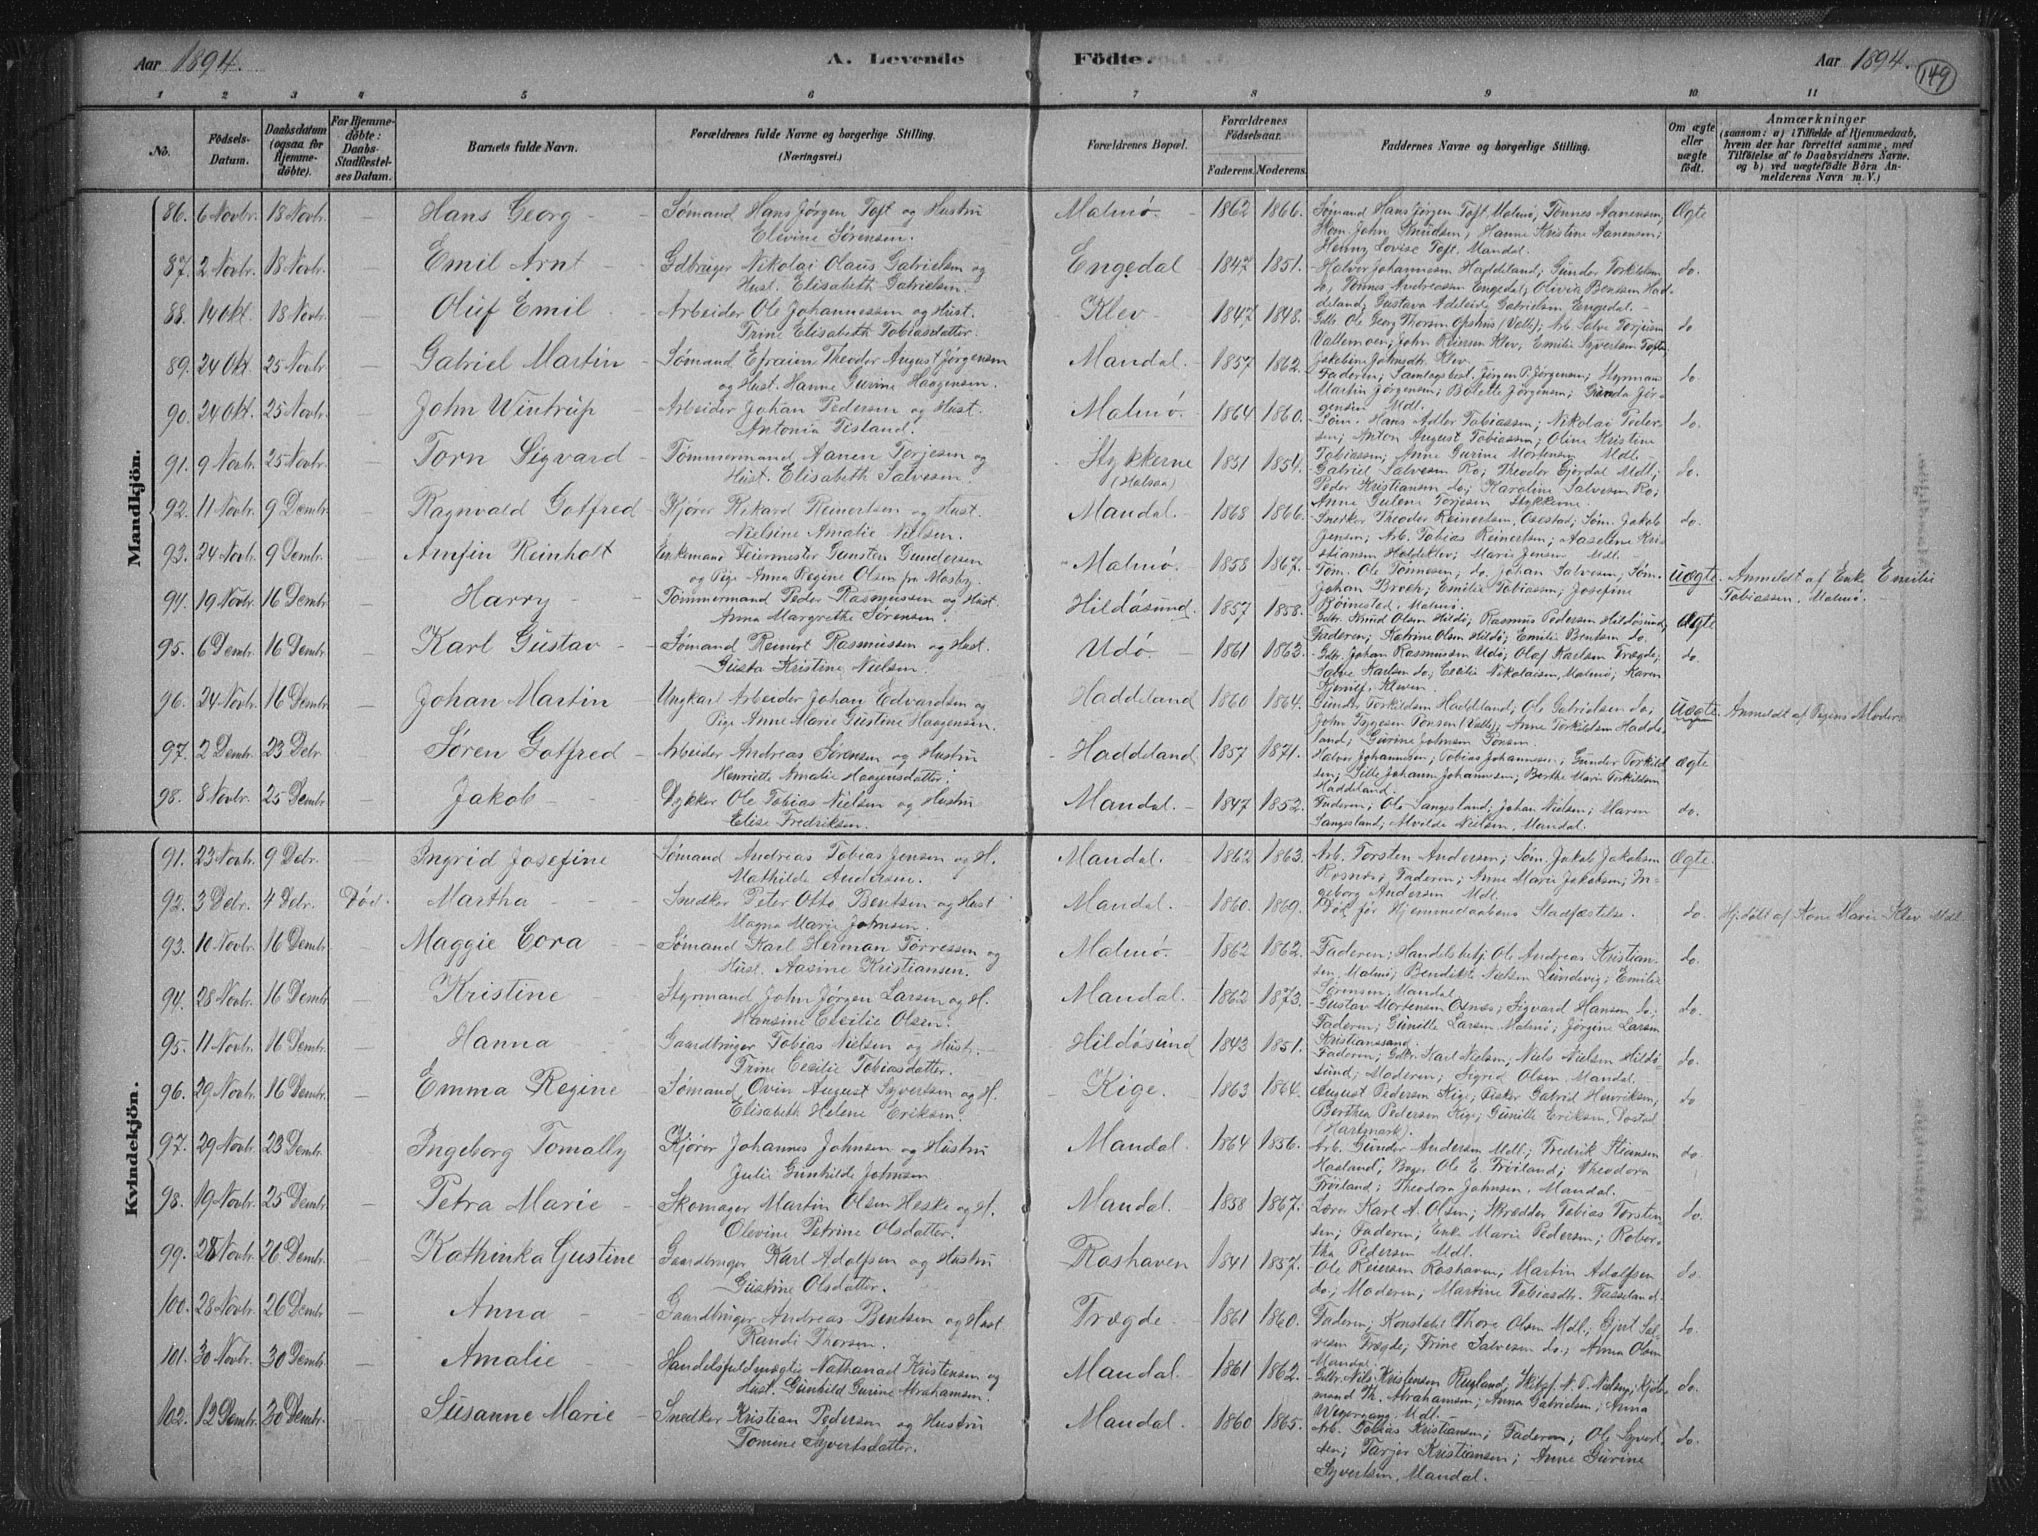 Aar 1894. A. Levende Födte. Aar 1894. 149
1 2 3 4 5 6 7 8 9 10 11
No. Födsels-Datum. Daabsdatum (ogsaa for Hjemmedöbte). For Hjemmedöbte: Daabs-Stadfæstelses Datum. Barnets fulde Navn. Forældrenes fulde Navne og borgerlige Stilling. (Næringsvei.) Forældrenes Bopæl. Forældrenes Födselsaar. Faderens. Moderens. Faddernes Navne og borgerlige Stilling. Om ægte eller uægte födt. Anmærkninger (saasom: a) i Tilfælde af Hjemmedaab, hvem der har forrettet samme, med Tilföielse af to Daabsvidners Navne, og b) ved uægtefödte Börn Anmelderens Navn m. V.)
Mandkjön.
86. 6 Novbr. 18 Novbr. — Hans Georg - Sømand Hans Jørgen Toft og Hustru Malmø. 1862 1866. Sømand Hans Jørgen Toft, Malmø; Tønnes Aanensen, Ægte
Elevine Sørensen. Tom. John Knudsen, Hanne Kristine Aanensen;
Henny Lovise Toft, Mandal.
87. 2 Novbr. 18 Novbr. — Emil Arnt - Gdbruger Nikolai Olaus Gabrielsen og Engedal 1847 1851. Halvor Johannessen Haddeland; Gunder Torkildsen do.
Hust. Elisabeth Gabrielsen. do, Tønnes Andreassen Engedal; Olivia Bentsen Had-
88. 14 Okt. 18 Novbr. — Oluf Emil - Arbeider Ole Johannessen og Hust. Klev 1847 1848. deland; Gustava Adelaide Gabrielsen Engedal.
Trine Elisabeth Tobiasdatter. Gdbr. Ole Georg Thorsen Opshus (Valle); Arb. Salve Torjusen do
Vallemoen; John Reiersen Klev; Emilie Syvertsen Tofte;
89. 24 Okt. 25 Novbr. — Gabriel Martin - Sømand Efraim Theodor August Jørgensen Mandal. 1857 1862. Jakobine Johnsdtr. Klev.
og Hust. Hanne Gurine Haagensen. Faderen; Samlagsbest. Jørgen P. Jørgensen; Styrmand do.
Martin Jørgensen; Bolette Jørgensen; Gunda Jør-
90. 24 Okt. 25 Novbr. — John Wintrup - Arbeider Johan Pedersen og Hust. Malmø. 1864 1860. gensen Mdl.
Antonia Tisland. Søm. Hans Adler Tobiassen; Nikolai Peder- do.
sen; Anton August Tobiassen; Oline Kristine
91. 9 Novbr. 25 Novbr. — Torn Sigvard - Tømmermand Aanen Torjesen og Stykkerne 1851 1854. Tobiassen; Anne Gurine Mortensen Mdl.
Hust. Elisabeth Salvesen. (Halsaa) Gabriel Salvesen Ro; Theodor Gjerdal Mdl; do.
Peder Kristiansen do; Karoline Salvesen Ro;
92. 11 Novbr. 9 Dembr. — Ragnvald Gotfred - Kjører Rikard Reinertsen og Hust. Mandal. 1868 1866. Anne Gulene Torjesen Stykkerne
Nielsine Amalie Nielsen. Snedker Theodor Reinertsen, Osestad; Søm. Jakob do.
Jensen; Arb. Tobias Reinertsen; Aaselene Kris-
93. 24 Novbr. 9 Dembr. — Arnfin Reinholt Enkemand Feiermester Gunsten Gundersen Malmø. 1858 1867. stiansen Holdeklev; Marie Jensen Mdl.
og Pige Anna Regine Olsen fra Mosby. Tøm. Ole Tønnesen; do. Johan Salvesen; Søm. Uægte. Anmeldt af Enke Emilie
Johan Broch; Emilie Tobiassen; Josefine Tobiassen, Malmø.
94. 19 Novbr. 16 Dembr. — Harry - Tømmermand Peder Rasmussen og Hust. Hildøsund. 1857 1858. Røinestad, Malmø.
Anna Margrethe Sørensen. Gdbr. Knud Olsen Hildø; Rasmus Pedersen Hildøsund; Ægte
95. 6 Dembr. 16 Dembr. — Karl Gustav - Sømand Reinert Rasmussen og Hust. Udø 1861 1863. Faderen; Katrine Olsen Hildø; Emilie Bentsen do.
Gusta Kristine Nielsen. Gdbr. Johan Rasmussen Udø; Olaf Karlsen Trægde; do.
Salve Karlsen do; Cecilie Nikolaisen, Malmø; Karen
96. 24 Novbr. 16 Dembr. — Johan Martin - Ungkarl Arbeider Johan Edvardsen og Haddeland 1860 1864. Gunder Torkildsen Haddeland; Ole Gabrielsen do; Uægte. Anmeldt af Pigens Moder.
Pige Anne Marie Gustine Haagensen.
97. 2 Dembr. 23 Debr. — Søren Gotfred - Arbeider Andreas Sørensen og Hustru Haddeland 1857 1871. Halvor Johannesen; Tobias Johannesen; Gunder Torkild- Ægte
Henriette Amalie Haagensdatter. sen; Gitte Johanne Johannesen; Berthe Marie Torkildsen
Haddeland.
98. 8 Novbr. 25 Dembr. — Jakob - Dykker Ole Tobias Nielsen og Hustru Mandal. 1847 1852. Faderen; Ole Sangesland; Johan Nielsen; Maren do.
Elise Fredriksen. Sangesland; Alvilde Nielsen, Mandal.
Kvindekjön.
91. 23 Novbr. 9 Debr. — Ingrid Josefine Sømand Andreas Tobias Jensen og H. Mandal. 1862 1863. Arb. Torsten Andersen; Søm. Jakob Jakobsen Ægte.
Mathilde Andersen. Rosnes; Faderen; Anne Marie Jakobsen; In-
geborg Andersen Mdl.
92. 3 Debr. 4 Debr. Død. Martha - Snedker Peter Otto Bentsen og Hust Mandal. 1860. 1869. Død før Hjemmedaabens Stadfæstelse. do. Hj. døbt af Kone Marie Klev Mdl.
Magna Marie Johnsen.
93. 10 Novbr. 16 Dembr. — Maggie Cora Sømand Karl Herman Tørressen og Malmø. 1862 1862. Faderen; Handelsbetj. Ole Andreas Kristian- do.
Hust. Aasine Kristiansen. sen, Malmø; Bendikte Nielsen Lundevig; Emilie
94. 28 Novbr. 16 Dembr. — Kristine - Styrmand John Jørgen Larsen og H. Mandal. 1862 1873. Sørensen, Mandal.
Hansine Cecilie Olsen. Gustav Mortensen Osnes; Sigvard Hansen do; do.
Faderen; Gunille Larsen Malmø; Jørgine Larsen
95. 11 Novbr. 16 Dembr. — Hanna - Gaardbruger Tobias Nielsen og Hustr. Hildøsund 1843 1851. Kristianssand.
Trine Cecilie Tobiasdatter. Faderen; Gdbr. Karl Nielsen; Niels Nielsen Hildø- do.
sund; Moderen; Sigrid Olsen, Mandal.
96. 29 Novbr. 16 Dembr. — Emma Regine Sømand Ovin August Syvertsen og H. Kige. 1863 1864. August Pedersen Kige; Fisker Gabriel Henriksen; do
Elisabeth Helene Eriksen. Berthea Pedersen Kige; Gunille Eriksen, Dostad
(Hartmark).
97. 29 Novbr. 23 Dembr. — Ingeborg Tomally Kjører Johannes Johnsen og Hustru Mandal. 1864 1856. Arb. Gunder Andersen Mdl; Fredrik Stiansen do.
Julie Gunhilde Johnsen. Haaland; Bager Ole E. Frøiland; Theodora
Frøiland; Theodora Johnsen, Mandal.
98. 19 Novbr. 25 Dembr. — Petra Marie - Skomager Martin Olsen Heske og H. Mandal. 1858 1867. Lærer Karl A. Olsen; Skrædder Tobias Torsten- do.
Olevine Petrine Olsdatter. sen; Faderen; Enke Marie Pedersen; Rober-
tha Pedersen Mdl.
99. 28 Novbr. 26 Dembr. — Kathinka Gustine Gaardbruger Karl Adolfsen og Hustru Roshaven 1841 1857. Ole Reiersen Roshaven; Martin Adolfsen do.
Gustine Olsdatter. do; Moderen; Martine Tobiasdtr. Tasseland.
100. 28 Novbr. 26 Dembr. — Anna - Gaardbruger Andreas Bentsen og Hust Trægde 1861 1860. Faderen; Konstabel Thore Olsen Mdl; Gjert Sal- do.
Randi Thorsen. vesen Trægde; Trine Salvesen do; Anna Olsen
Mandal.
101. 30 Novbr. 30 Dembr. — Amalie - Handelsfuldmægtig Nathanael Kristensen og Mandal 1861 1862. Gdbr. Nils Kristensen Rugland; Skibsf. N. T. Nielsen; Kjøb- do.
Hust. Gunhild Gurine Abrahamsen. mand Th. Abrahamsen; Anna Gabrielsen; Anna
102. 12 Dembr. 30 Dembr. Susanne Marie - Snedker Kristian Pedersen og Hustru Mandal 1860 1865. Wegergang, Mdl.
Tomine Syvertsdatter. Arb. Tobias Kristiansen; Faderen; Ole Syvert- do.
sen; Tarjer Kristiansen; Anne Gurine
Syvertsen, Mandal.